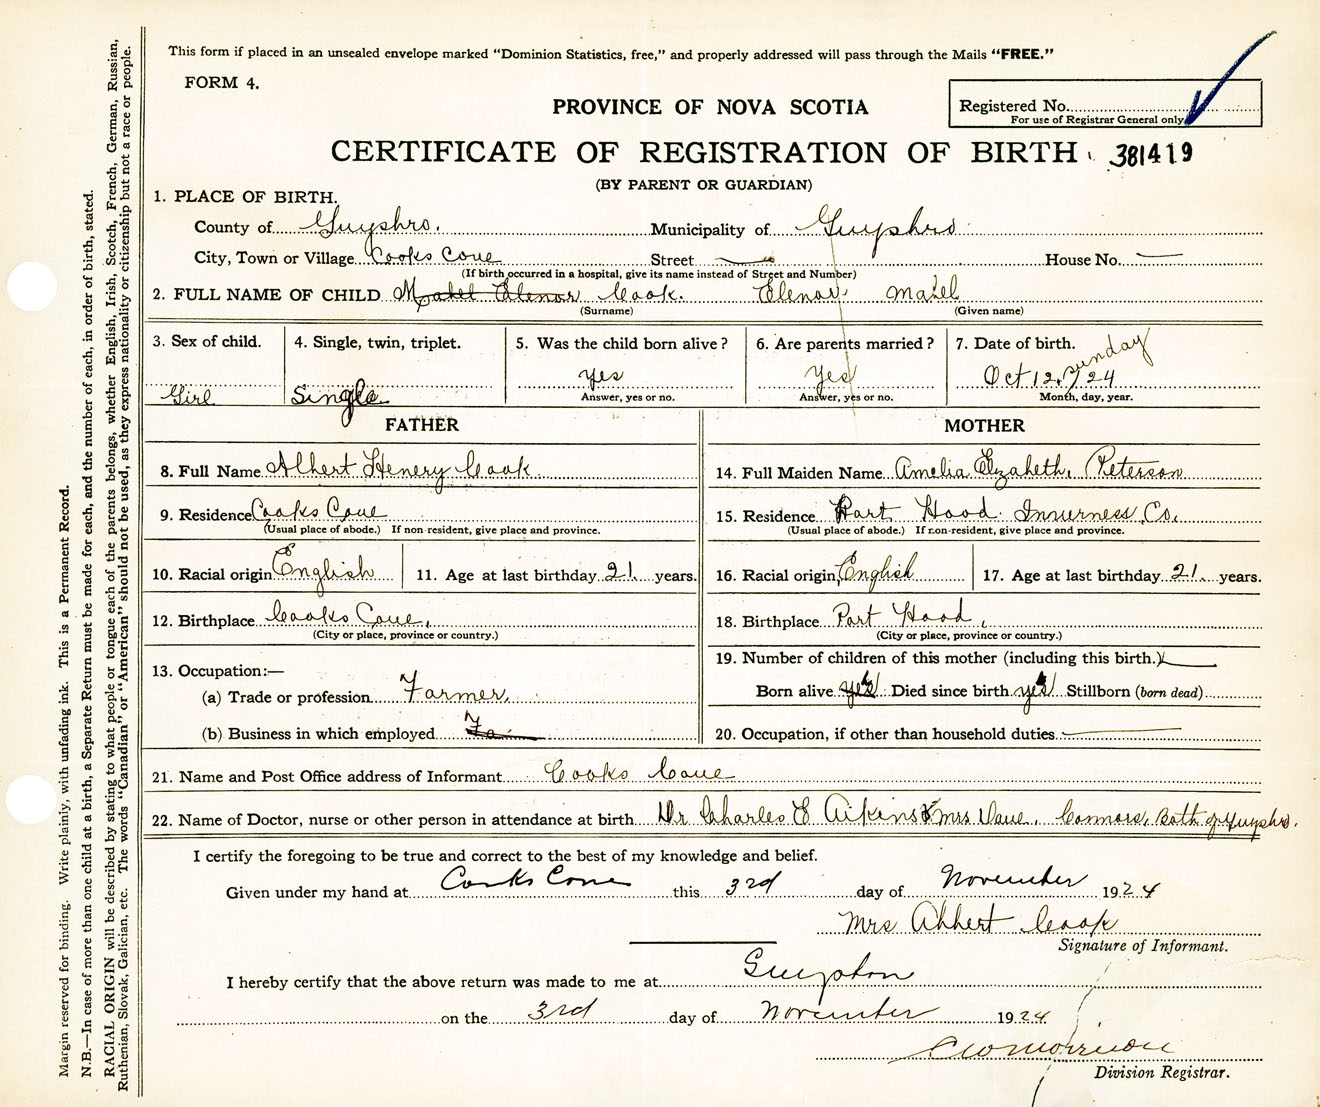 This form if placed in an unsealed envelope marked "Dominion Statistics, free," and properly addressed will pass through the Mails "FREE."
FORM 4.
PROVINCE OF NOVA SCOTIA
Registered No.
For use of Registrar General only
CERTIFICATE OF REGISTRATION OF BIRTH 381419
(BY PARENT OR GUARDIAN)
1. PLACE OF BIRTH.
County of Guyshro. Municipality of Guyshro
City, Town or Village Cooks Cove Street House No.
(If birth occurred in a hospital, give its name instead of Street and Number)
2. FULL NAME OF CHILD Mabel Elenor Cook. Elenor Mabel
(Surname) (Given name)
3. Sex of child. 4. Single, twin, triplet. 5. Was the child born alive? 6. Are parents married? 7. Date of birth.
Girl Single yes Yes Oct 12, 24 Sunday
Answer, yes or no. Answer, yes or no. Month, day, year.
FATHER MOTHER
8. Full Name Albert Henery Cook. 14. Full Maiden Name Amelia Elizabeth, Peterson
9. Residence Cooks Cove 15. Residence Port Hood Inverness, Co.
(Usual place of abode.) If non-resident, give place and province. (Usual place of abode.) If non-resident, give place and province.
10. Racial origin English 11. Age at last birthday 21. years. 16. Racial origin English 17. Age at last birthday 21. years.
12. Birthplace Cooks Cove. 18. Birthplace Port Hood,
(City or place, province or country.) (City or place, province or country.)
13. Occupation:— 19. Number of children of this mother (including this birth.)
(a) Trade or profession Farmer. Born alive yes Died since birth yes Stillborn (born dead)
(b) Business in which employed Fa 20. Occupation, if other than household duties
21. Name and Post Office address of Informant Cooks Cove
22. Name of Doctor, nurse or other person in attendance at birth Dr Charles E Aikins & Mrs Dave, Connors, Both of Guyshro.
I certify the foregoing to be true and correct to the best of my knowledge and belief.
Given under my hand at Cooks Cove this 3rd day of November 1924
Mrs Albert Cook
Signature of Informant.
I hereby certify that the above return was made to me at Guysboro
on the 3rd day of November 1924
Morrison
Division Registrar.
Margin reserved for binding. Write plainly, with unfading ink. This is a Permanent Record.
N.B.—In case of more than one child at a birth, a Separate Return must be made for each, and the number of each, in order of birth, stated.
RACIAL ORIGIN will be described by stating to what people or tongue each of the parents belongs, whether English, Irish, Scotch, French, German, Russian,
Ruthenian, Slovak, Galician, etc. The words "Canadian" or "American" should not be used, as they express nationality or citizenship but not a race or people.